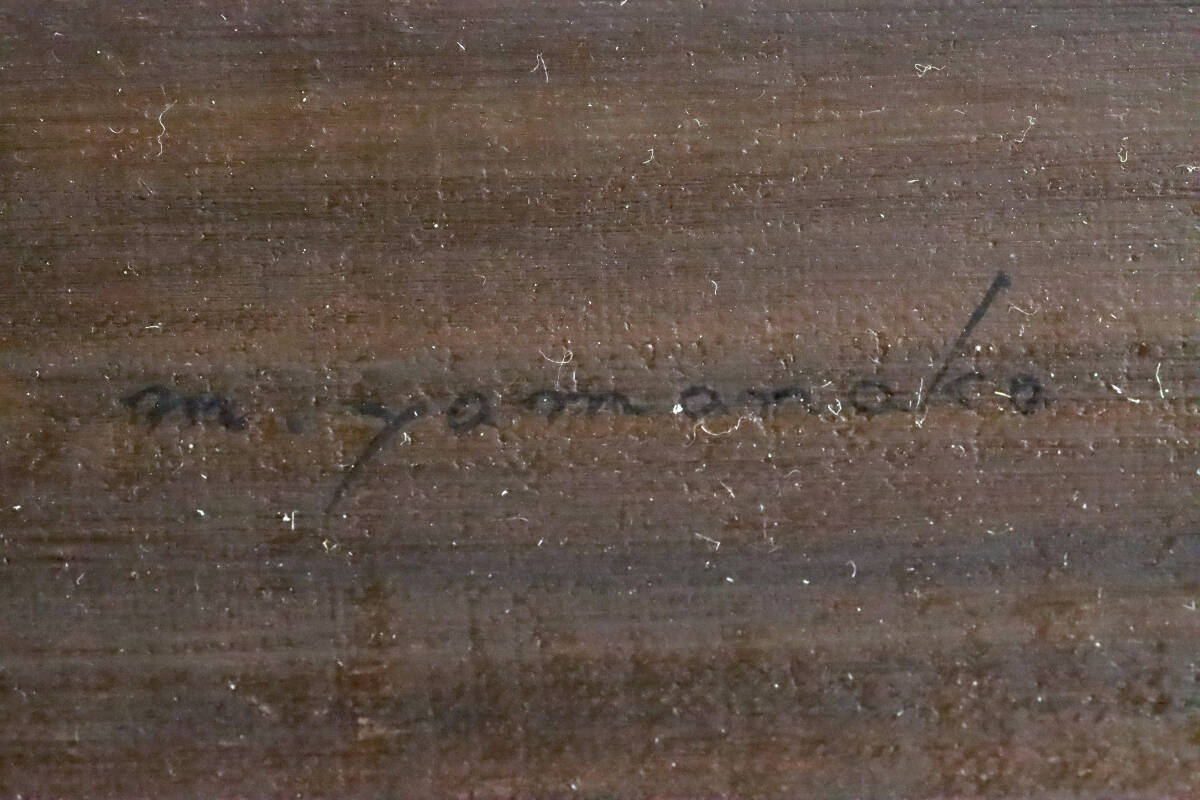 m. yamanaka